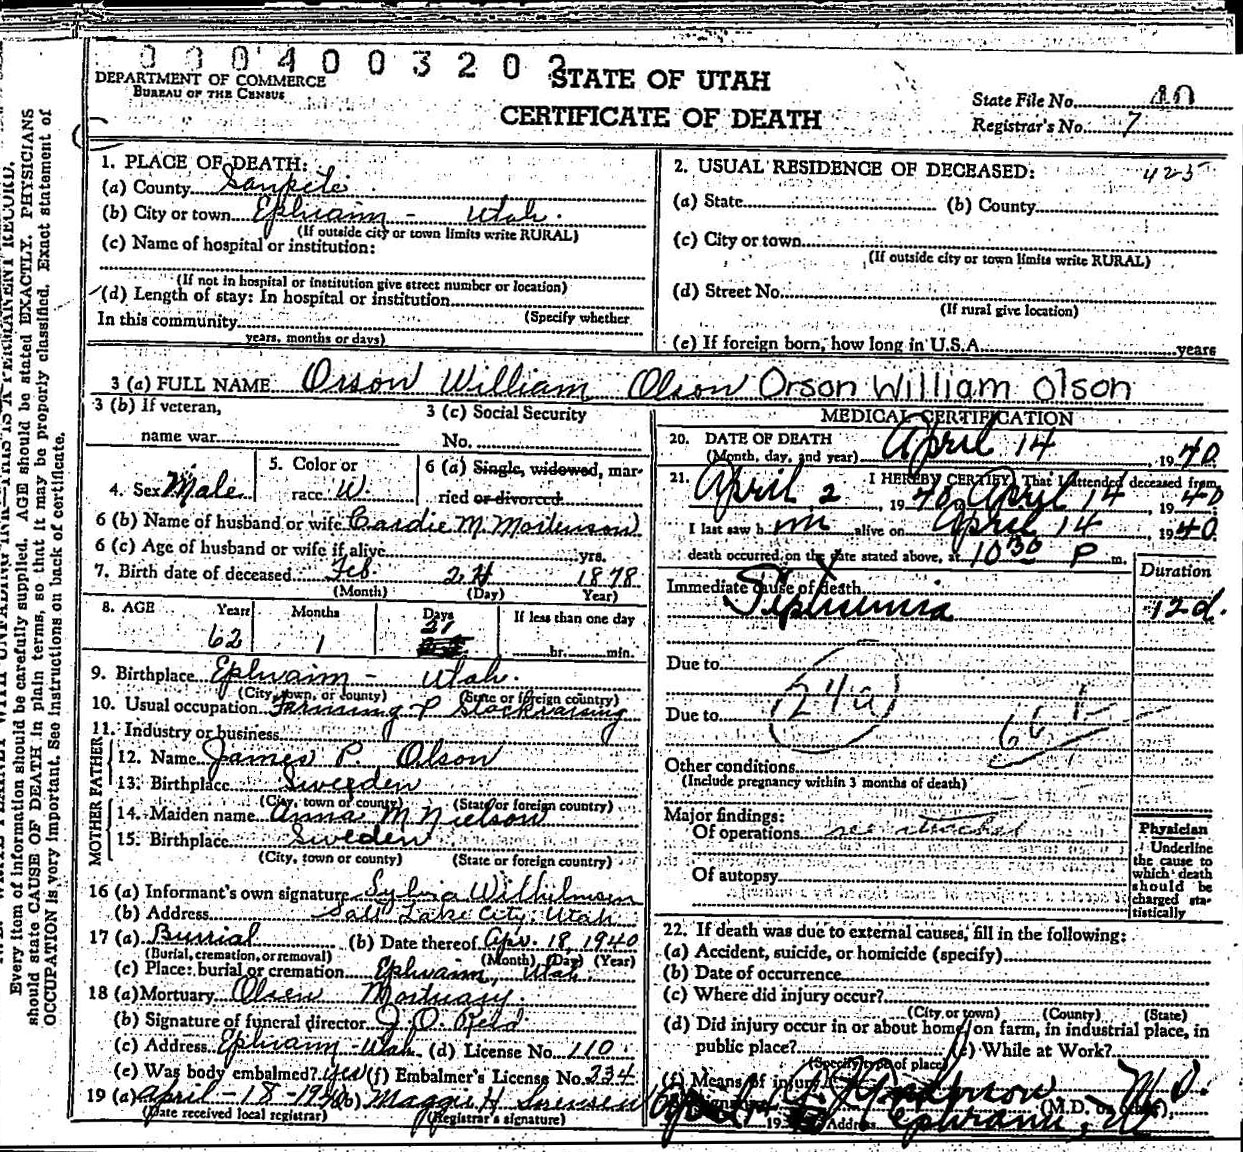 0004003202
DEPARTMENT OF COMMERCE
BUREAU OF THE CENSUS
STATE OF UTAH
CERTIFICATE OF DEATH
State File No. 40
Registrar's No. 7
1. PLACE OF DEATH:
(a) County Sanpete
(b) City or town Ephraim - Utah.
(If outside city or town limits write RURAL)
(c) Name of hospital or institution:
(If not in hospital or institution give street number or location)
(d) Length of stay: In hospital or institution
(Specify whether
In this community
years, months or days)
2. USUAL RESIDENCE OF DECEASED: 425
(a) State (b) County
(c) City or town
(If outside city or town limits write RURAL)
(d) Street No.
(If rural give location)
(e) If foreign born, how long in U.S.A. years
3 (a) FULL NAME Orson William Olson Orson William Olson
3 (b) If veteran,
name war
3 (c) Social Security
No.
4. Sex Male
5. Color or
race W.
6 (a) Single, widowed, mar-
ried or divorced
6 (b) Name of husband or wife M. Mortenson
6 (c) Age of husband or wife if alive yrs.
7. Birth date of deceased Feb 24 1878
(Month) (Day) Year)
8. AGE Years Months Days If less than one day
62 1 21 hr. min.
9. Birthplace Ephraim - Utah.
(City, town, or county) (State or foreign country)
10. Usual occupation Farming & Stockraising
11. Industry or business
FATHER
12. Name James P. Olson
13. Birthplace Sweden
(City, town or county) (State or foreign country)
MOTHER
14. Maiden name Anna M Nielson
15. Birthplace Sweden
(City, town or county) (State or foreign country)
16 (a) Informant's own signature Sylvia Wilhelmsen
(b) Address Salt Lake City, Utah
17 (a) Burrial (b) Date thereof Apr. 18, 1940
(Burial, cremation, or removal) (Month) (Day) (Year)
(c) Place: burial or cremation Ephraim, Utah.
18 (a) Mortuary Olsen Mortuary.
(b) Signature of funeral director
(c) Address Ephraim - Utah (d) License No. 110.
(e) Was body embalmed? yes (f) Embalmer's License No. 334
19 (a) April - 18 - 1940 (b) Maggie H. Sorensen
(Date received local registrar) (Registrar's signature)
MEDICAL CERTIFICATION
20. DATE OF DEATH
(Month, day, and year) April 14 1940
21. I HEREBY CERTIFY, That I attended deceased from
April 2, 1940, April 14 1940
I last saw h im alive on April 14 1940
death occurred on the date stated above, at 10 30 P m.
Duration
Immediate cause of death
12 d.
Due to
Due to
24a
Other conditions
(Include pregnancy within 3 months of death)
Major findings:
Of operations
Of autopsy
Physician
Underline
the cause to
which death
should be
charged sta-
tistically
22. If death was due to external causes, fill in the following:
(a) Accident, suicide, or homicide (specify)
(b) Date of occurrence
(c) Where did injury occur?
(City or town) (County) (State)
(d) Did injury occur in or about home, on farm, in industrial place, in
public place? (e) While at Work?
(Specify type of place)
(f) Means of injury
Anderson M.D.
(M.D. or other)
19 Address Ephraim, U
Every item of information should be carefully supplied. AGE should be stated EXACTLY. PHYSICIANS
should state CAUSE OF DEATH in plain terms, so that it may be properly classified. Exact statement of
OCCUPATION is very important. See instructions on back of certificate.